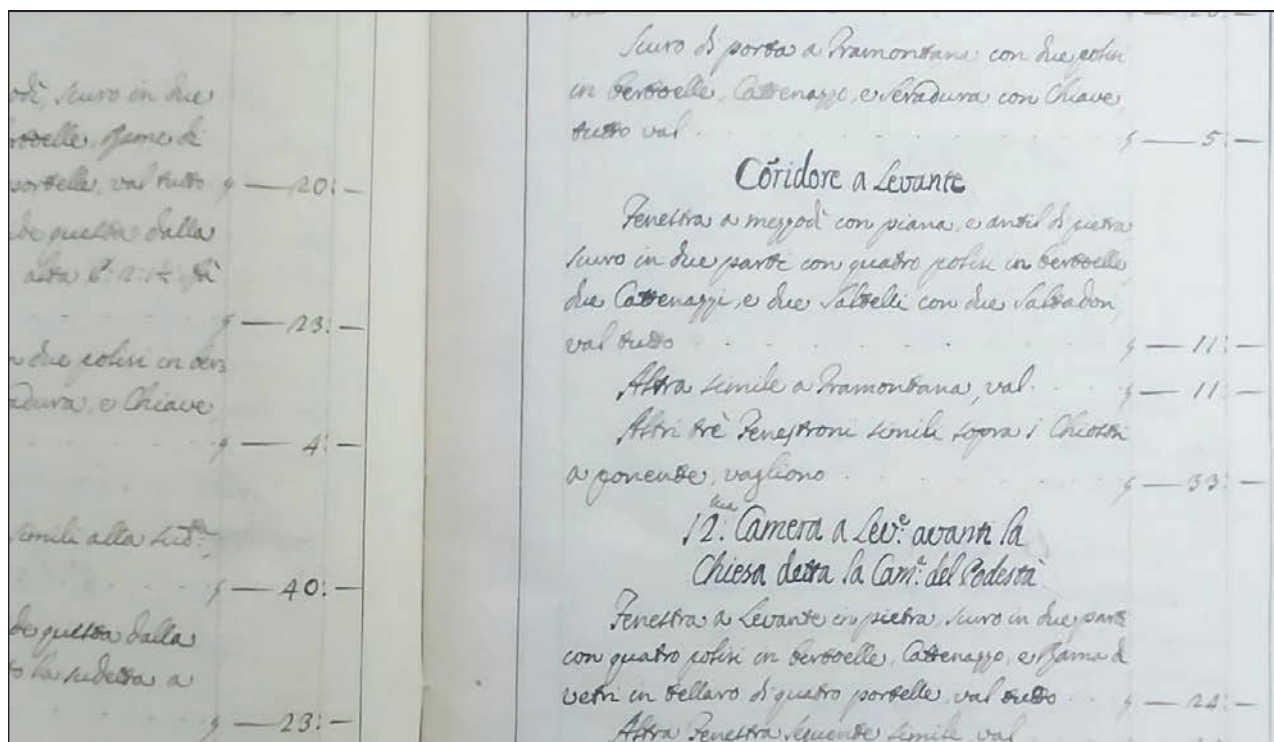 odì, scuro in due
bertoelle, Rame di
portelle, val tutto . ʒ — 20: —
de questa dalla
alta
ʒ — 23: —
due polisi in ber:
adura, e Chiave
ʒ — 4: —
simili alla sud:ta
ʒ — 40: —
de questa dalla
la sudetta a
ʒ — 23: —
Scuro di porta a Tramontana con due polisi
in bertoelle, Cattenazzo, e seradura con Chiave,
tutto val . ʒ — 5: —
Coridore a Levante
Fenestra a mezzodì con piana, e antil di pietra,
scuro in due parte con quatro polisi in bertoelle,
due Cattenazzi, e due Saltelli con due Saltadori,
val tutto . ʒ — 11: —
Altra simile a Tramontana, val . ʒ — 11: —
Altri trè Fenestroni simili sopra i Chiostri
a ponente, vagliono . ʒ — 33: —
12:ma Camera a Lev:e avanti la
Chiesa detta la Cam:a del Podestà
Fenestra a Levante in pietra, scuro in due parte
con quatro polisi in bertoelle, Cattenazzo, e Rama di
vetri in tellaro di quatro portelle, val tutto . ʒ — 24: —
Altra Fenestra seguente simile val